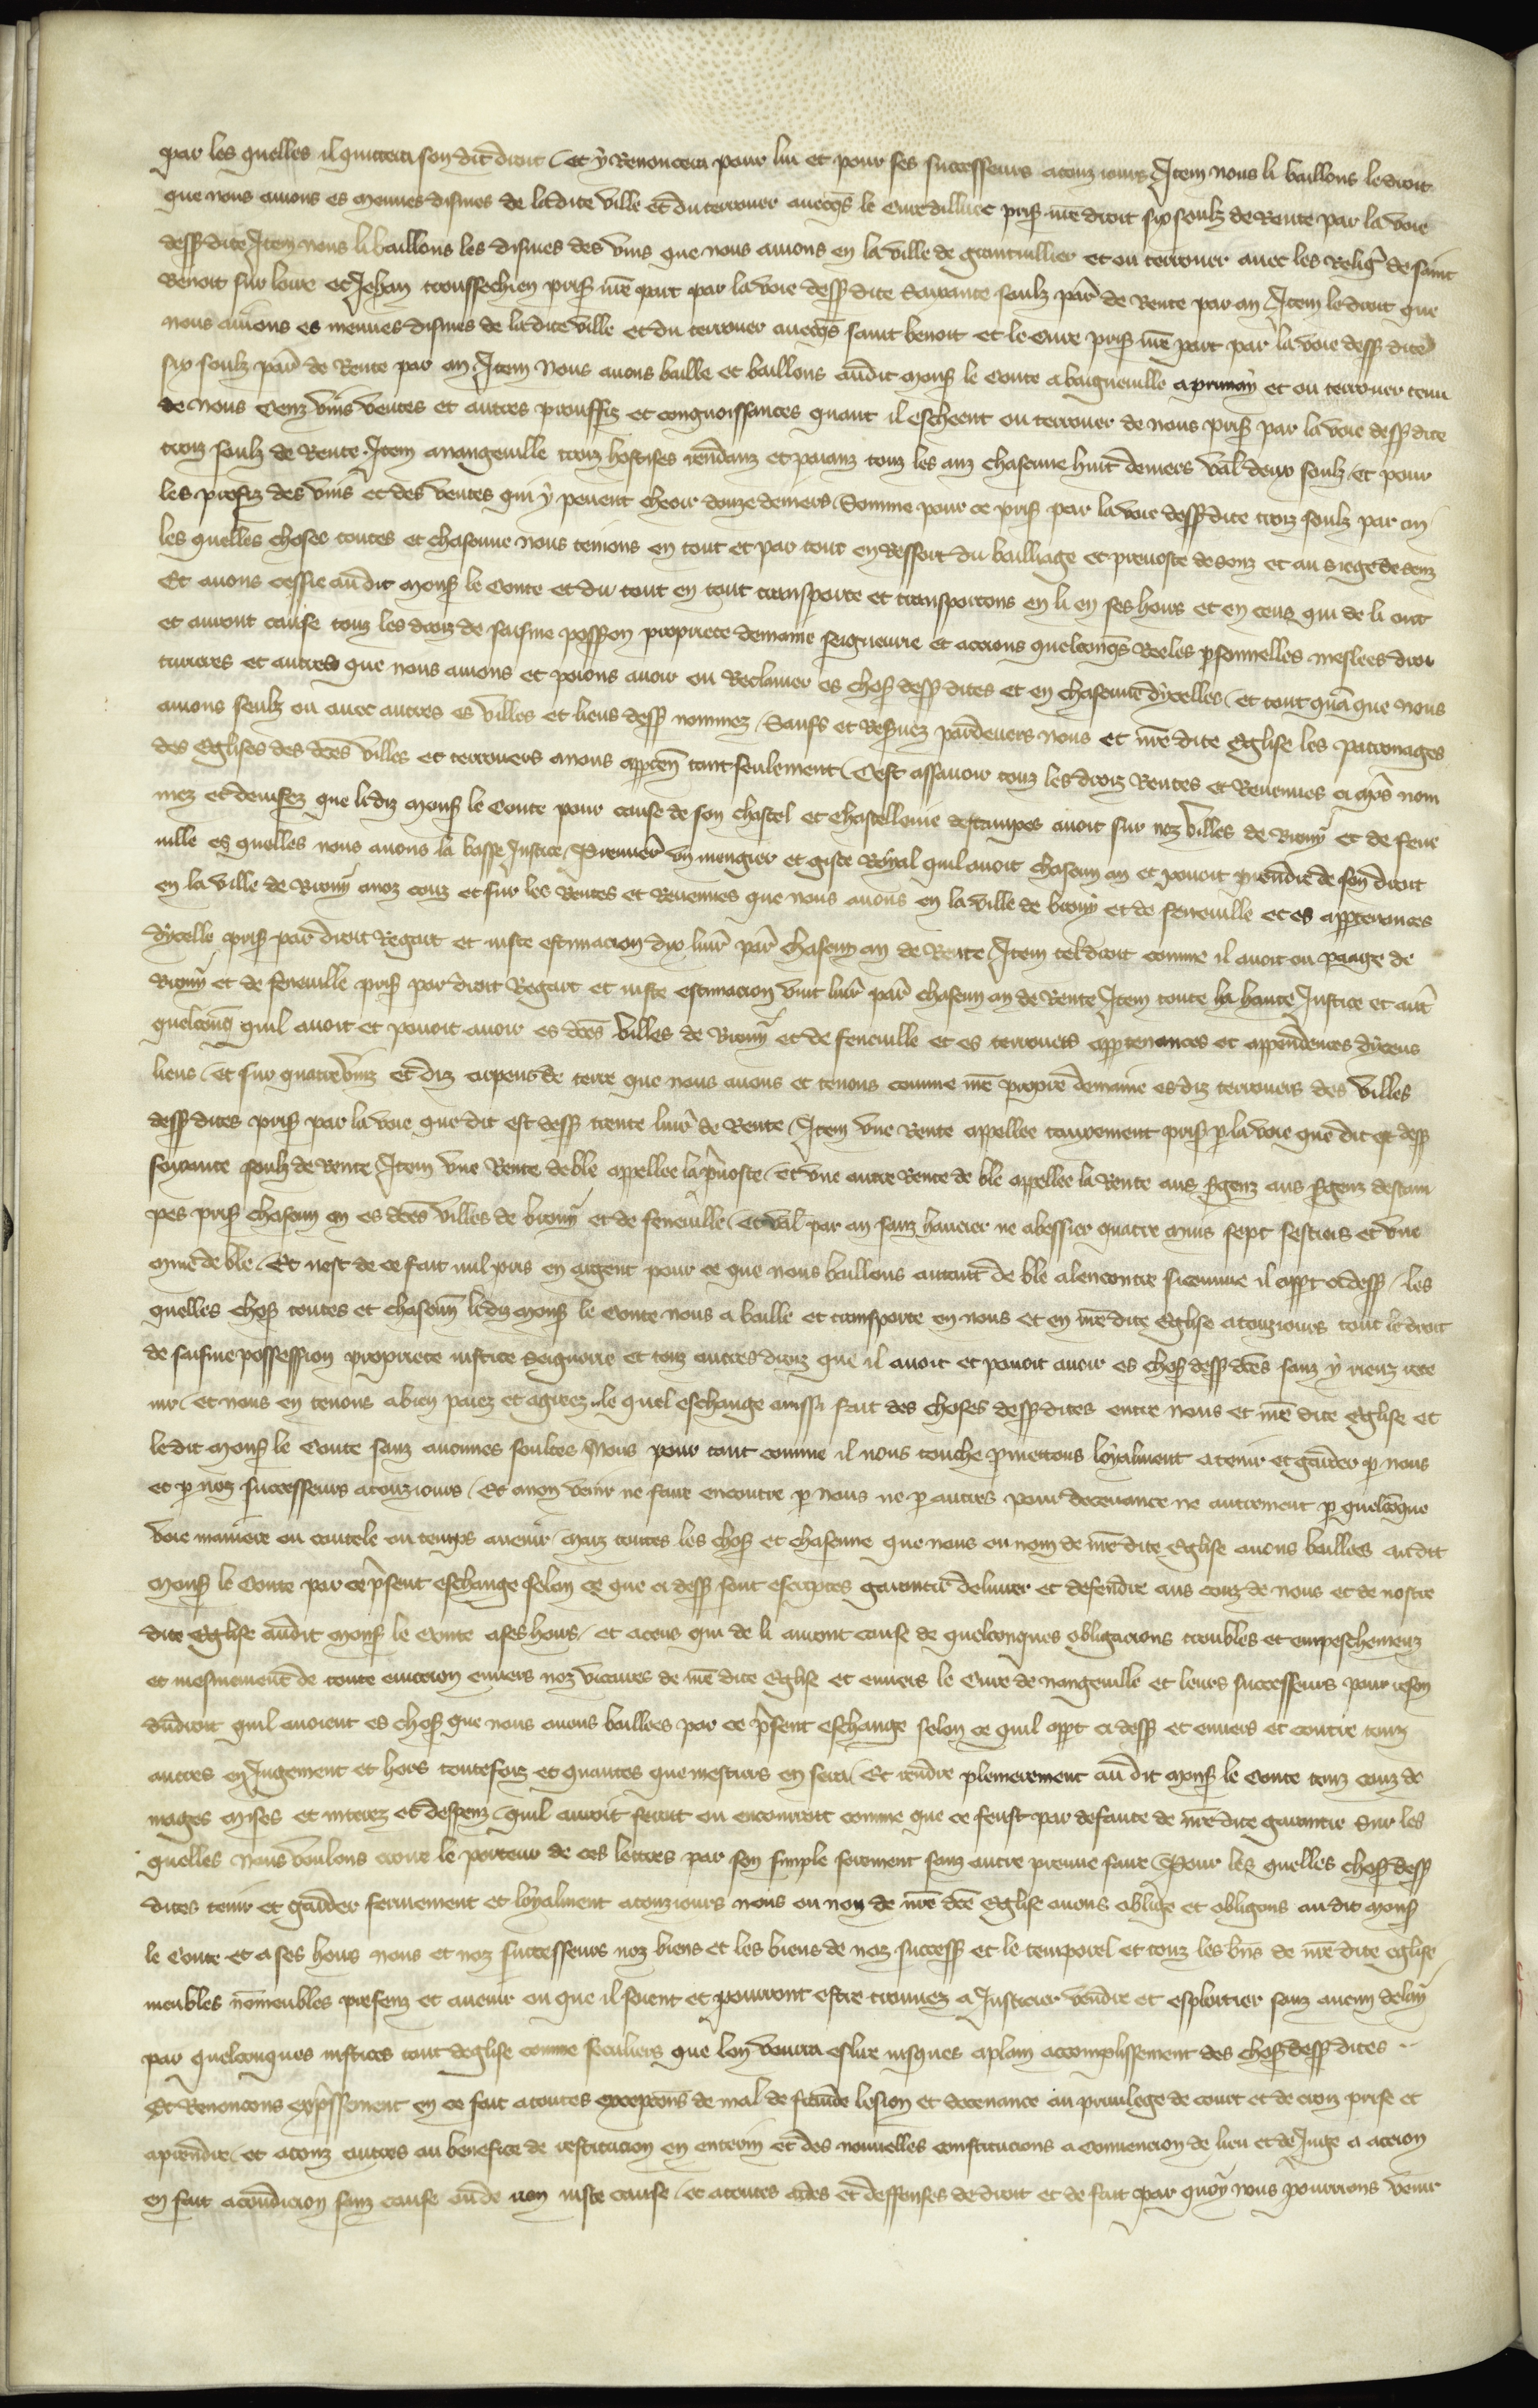 par les quelles il quittera son dit droit / et y Renoncera pour lui et pour ses successeurs a touz iours / Item nous li baillons le droit
que nous auions es menues dismes de la dite ville et du terrouer auecqs le Cure dilluec pris nre droit six soulz de Rente par la voie
dess dite Item nous li baillons les dismes des vins que nous auions en la ville de et ou terrouer auec les Religx de saint
Benoit sur loire et Jehan troussechien pris nre part par la voie dess dite Soixante soulz par de Rente par an / Item le droit que
nous auions es menues dismes de la dite ville et du terrouer auecqs saint benoit et le Cure pris nre part par la voie dess dite
six soulz par de Rente par an / Item Nous auons baille et baillons audit mons le Conte a baigneuille a prunay et ou terrouer tenu
de nous Cenz vins ventes et autres prouffiz et congnoissances quant il escheent ou terrouer de nous pris par la voie dess dite
troiz soulz de Rente. Item a nangeuille troiz hostises rendanz et paianz touz les anz chascune huit deniers val deux soulz / et pour
les profiz des vins et des ventes qui y peuent cheoir douze deniers / Somme pour ce pris par la voie dess dite troiz soulz par an /
les quelles choses toutes et chascune nous tenions en tout et par tout en Ressort du bailliage et preuoste de senz et au siege de senz
Et auons cessie audit mons le Conte et du tout en tout transporte et transportons en li en ses hoirs et en ceus qui de li ont
et auront cause touz les droiz de saisine possion propriete demaine seigneurie et accions quelconqs Reeles personnelles meslees direc
turieres et autres que nous auions et poions auoir ou Reclamer es choses dess dites et en chascune dycelles / et tout quanque nous
auions seulz ou auec autres es villes et lieus dess nommez / Saufs et Resuez pardeuers nous et nre dite Eglise les patronages
des Eglises des dces villes et terrouers a nous appten tant seulement / Cest assauoir touz les droiz Rentes et Reuenues ci aprs nom
mez et deuisez que ledit mons le Conte pour cause de son chastel et Chastellenie destampes auoit sur noz villes de Riony et de feue
uille es quelles nous auons la basse Justice / Premier vn mengier et giste Royal quil auoit chascun an et pouoit prendre de son droit
en la ville de Riony a noz couz et sur les Rentes et Reuenues que nous auons en la ville de briony et de feneuille et es appartenances
dycelle pris par droit Regart et iuste estimacion dix liur par chascun an de Rente / Item tel droit comme il auoit ou paage de
Riony et de feneuille pris par droit Regart et iuste estimacion vint liur par chascun an de Rente / Item toute la haute Justice et autr
quelconq quil auoit et pouoit auoir es dces villes de Riony et de feneuille et es terrouers appartenances et appendences dyceus
lieus / et sur quatrevinz et diz arpens de terre que nous auons et tenons comme nre propre demaine es diz terrouers des villes
dess dites pris par la voie que dit est dess trente liur de Rente / Item vne Rente appellee tauxement pris p la voie que dit est dess
soixante soulz de Rente / Item vne Rente de ble appellee la preuoste / et vne autre Rente de ble appellee la Rente aus sergenz aus sergenz destam
pes pris chascun an es dces villes de briony et de feneuille / et val par an sanz haucier ne abessier quatre muis sept sestiers et vne
mine de ble / Et nest de ce fait nul pris en argent pour ce que nous baillons autant de ble a lencontre si comme il appt ci dess / les
quelles choses toutes et chascune ledit mons le Conte nous a baille et transporte en nous et en nre dite Eglise a touziours tout le droit
de saisine possession propriete iustice Seigneurie et touz autres droiz que il auoit et pouoit auoir es choses dess dces sanz y rienz rete
nir / et nous en tenons a bien paiez et agreez / le quel eschange aussi fait des choses dess dites entre nous et nre dite Eglise et
ledit mons le Conte sanz aucunes soultes Nous pour tant comme il nous touche prmettons loyalment a tenir et garder p nous
et p noz successeurs a touziours / Et a non venir ne faire encontre p nous ne p autres pour deceuance ne autrement p quelconque
voie maniere ou cautele ou temps auenir / maiz toutes les choses et chascune que nous ou nom de nre dite Eglise auons baillees audit
mons le Conte par ce present eschange selon ce que ci dess sont escriptes garentir deliurer et defendre aus couz de nous et de nostre
dite Eglise audit mons le Conte a ses hoirs / et a ceus qui de li auront cause de quelconques obligacions troubles et empeschemenz
et mesmement de toute euiccion enuers noz vicaires de nre dite Eglise et enuers le Cure de nangeuille et leurs successeurs pour reson
dudroit quil auoient es choses que nous auons baillees par ce present eschange selon ce quil appt ci dess et enuers et contre touz
autres en Jugement et hors toutesfoiz et quantes que mestiers en sera / Et rendre plenierement au dit mons le Conte touz couz do
mages mises et interez et despenz / quil auroit feroit ou encourroit comme que ce feust par defaute de nre dite garentie Sur les
quelles Nous voulons croire le porteur de ces lettres par son simple serement sanz autre preuue faire / Pour les quelles choses dess
dites tenir et garder fermement et loyalment a touziours nous ou non de nre dce Eglise auons oblige et obligons audit mons
le Conte et a ses hoirs nous et noz successeurs noz biens et les biens de noz success et le temporel et touz les bns de nre dite eglise
meubles non meubles presenz et auenir ou que il soient et pourront estre trouuez a Justicier vendre et esploitier sanz aucun delay
par quelconques iustices tant deglise comme seculiers que lon voudra eslire iusques a plain accomplissement des choses dess dites ..
Et Renoncons expressement en ce fait a toutes excepcions de mal de fraude lesion et deceuance au priuilege de court et de croiz prise et
a prendre / et a touz autres au benefice de restitucion en enterin et des nouuelles constitucions a conuencion de lieu et de Juge a accion
en fait a condicion sanz cause ou de non iuste cause / et a toutes aides et deffenses de droit et de fait par quoy nous pourrions venir